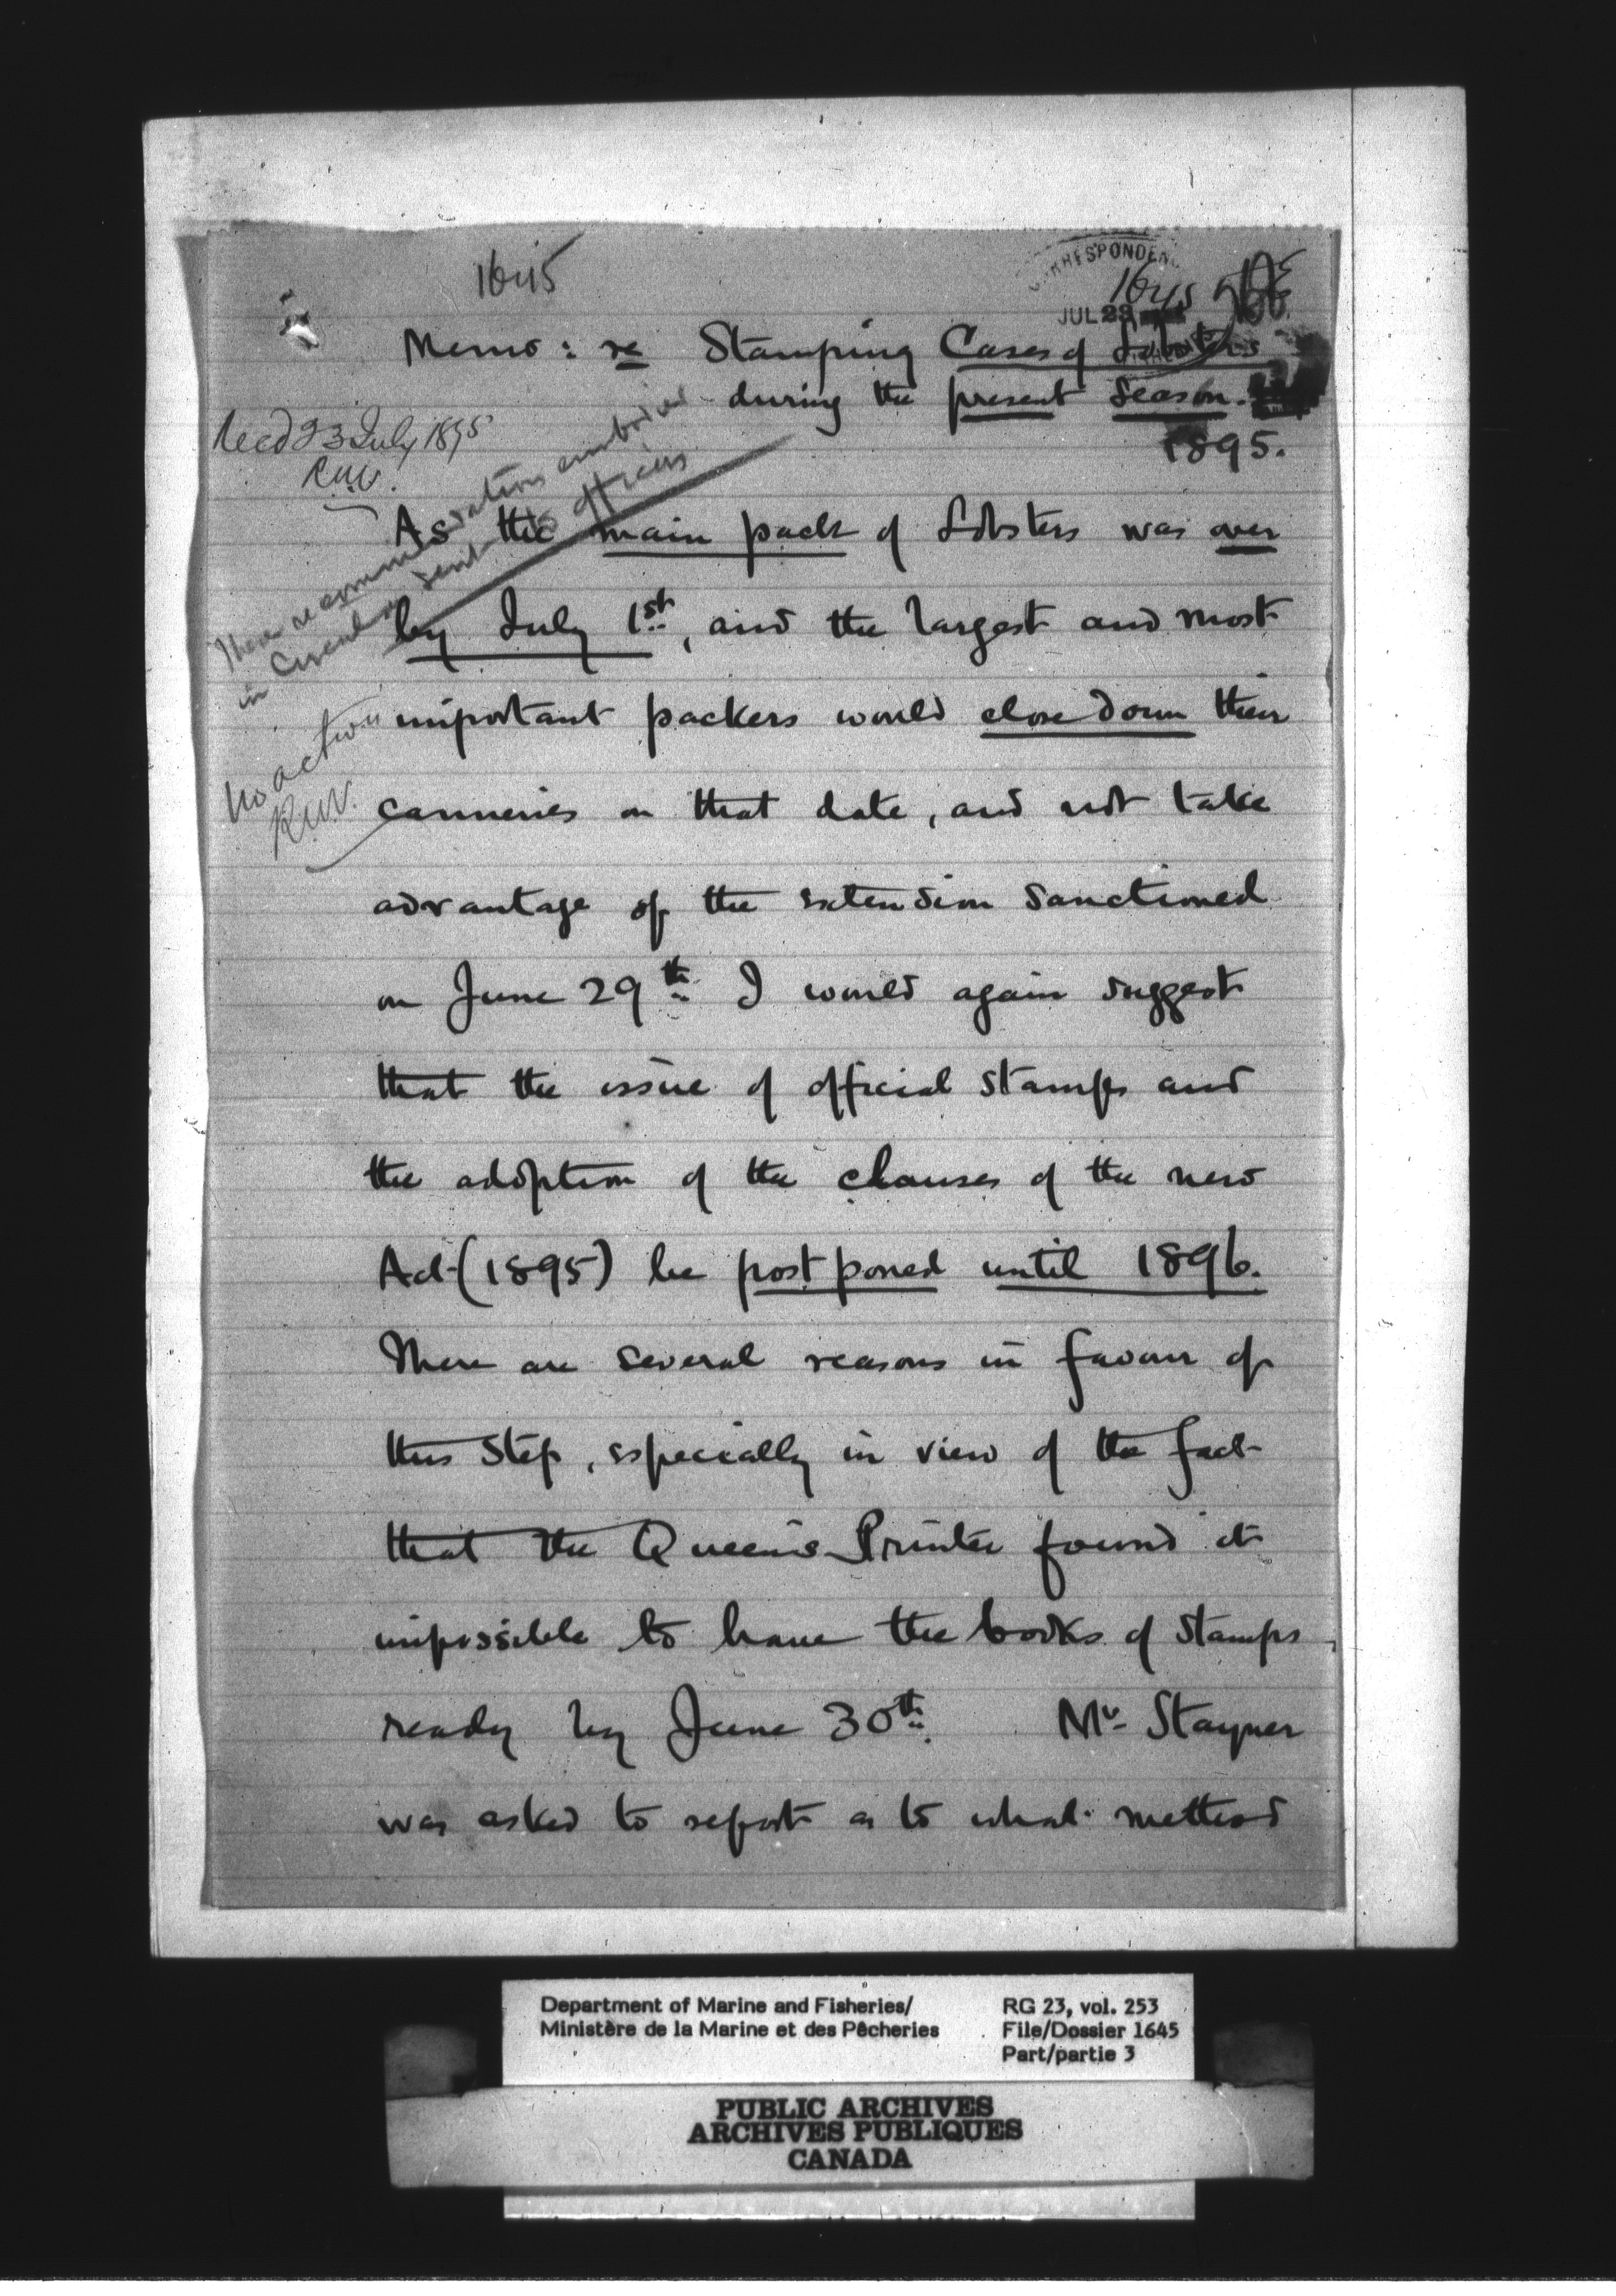 1645
CORRESPONDEN
1645
JUL 23
Memo: re Stamping Cases of Lobsters
during the present Season.
1895.
Recd 23 July 1895
R.W.
These recommendations embodied
in Circular sent to officers
No action
R.W.
As the main pack of Lobsters was over
by July 1st, and the largest and most
important packers would close down their
canneries on that date, and not take
advantage of the extension sanctioned
on June 29th I would again suggest
that the issue of official stamps and
the adoption of the clauses of the new
Act (1895) be postponed until 1896.
There are several reasons in favour of
this step, especially in view of the fact
that the Queen's Printer found it
impossible to have the books of stamps
ready by June 30th. Mr Stayner
was asked to report as to what method
Department of Marine and Fisheries/
Ministère de la Marine et des Pêcheries
RG 23, vol. 253
File/Dossier 1645
Part/partie 3
PUBLIC ARCHIVES
ARCHIVES PUBLIQUES
CANADA